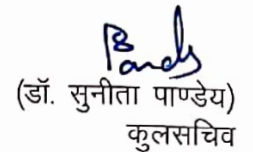 (डॉ. सुनीता पाण्डेय)
कुलसचिव